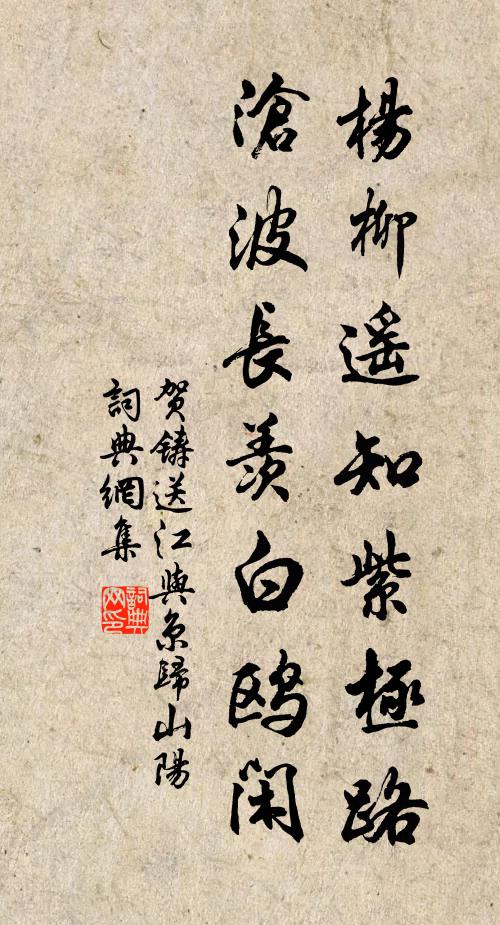 楊柳遥知紫極路
滄波長羨白鷗閑
贺鑄送江與京歸山陽
詞典網集
詞典网印